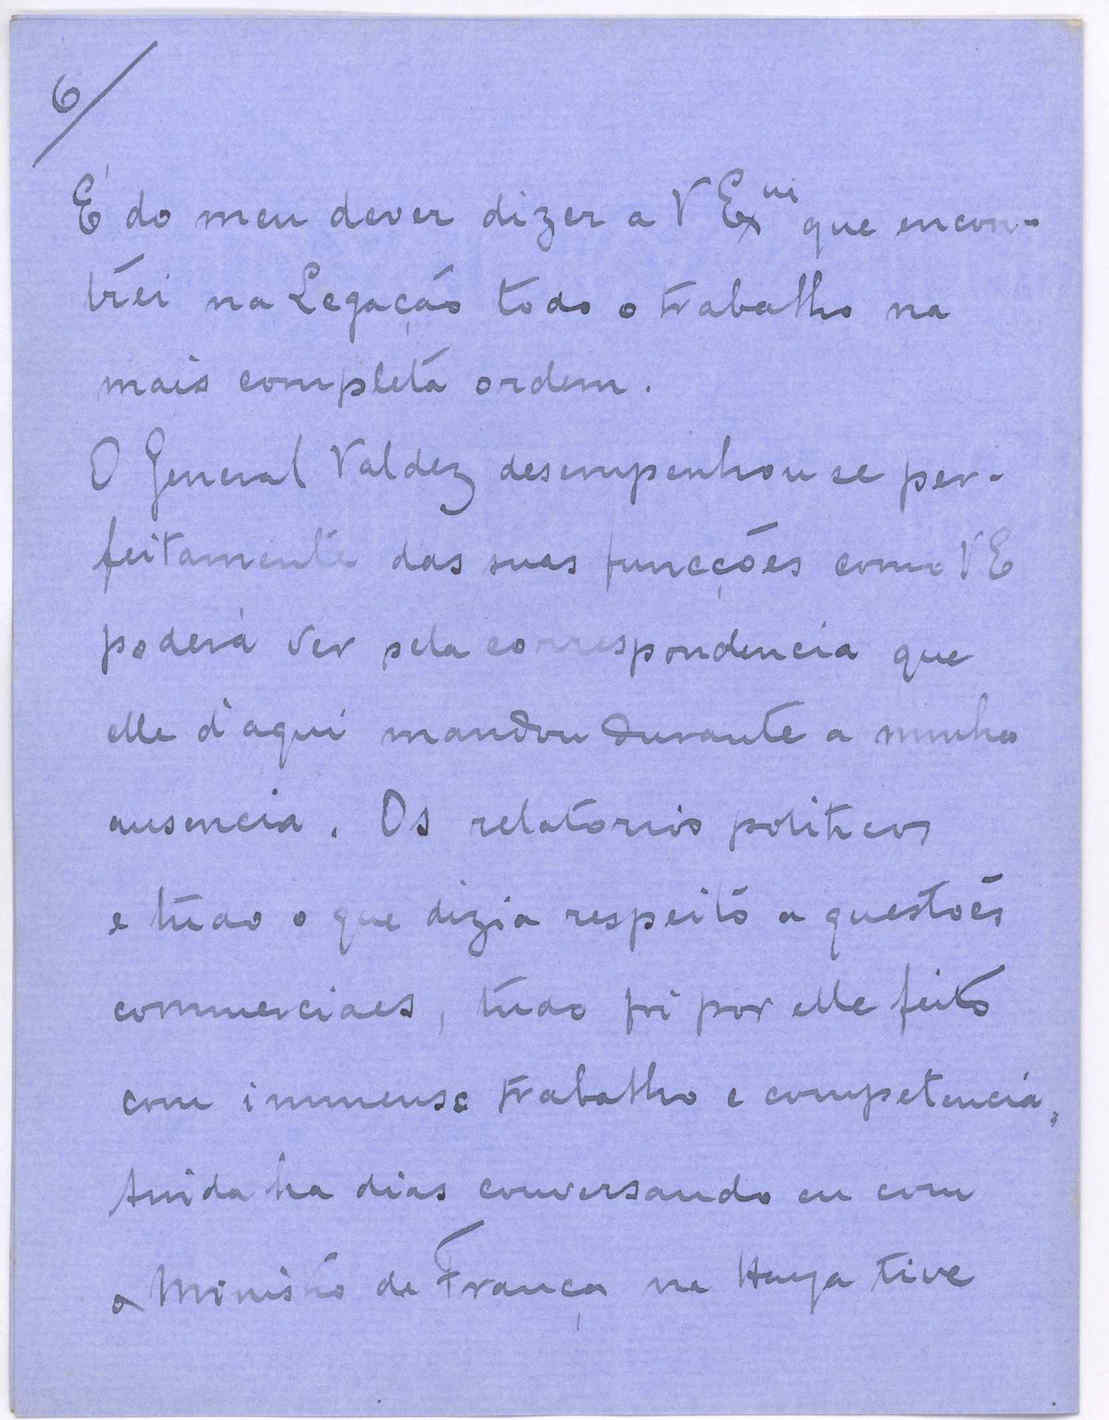 6/
É do meu dever dizer a V Ex^cia que encon-
trei na Legação todo o trabalho na
mais completa ordem.
O General Valdez desempenhou se per-
feitamente das suas funcções como V E
poderá ver pela correspondencia que
elle d'aqui mandou durante a minha
ausencia. Os relatorios politicos
e tudo o que dizia respeito a questões
commerciaes, tudo foi por elle feito
com immenso trabalho e competencia.
Ainda ha dias conversando eu com
o Ministro de França na Haya tive